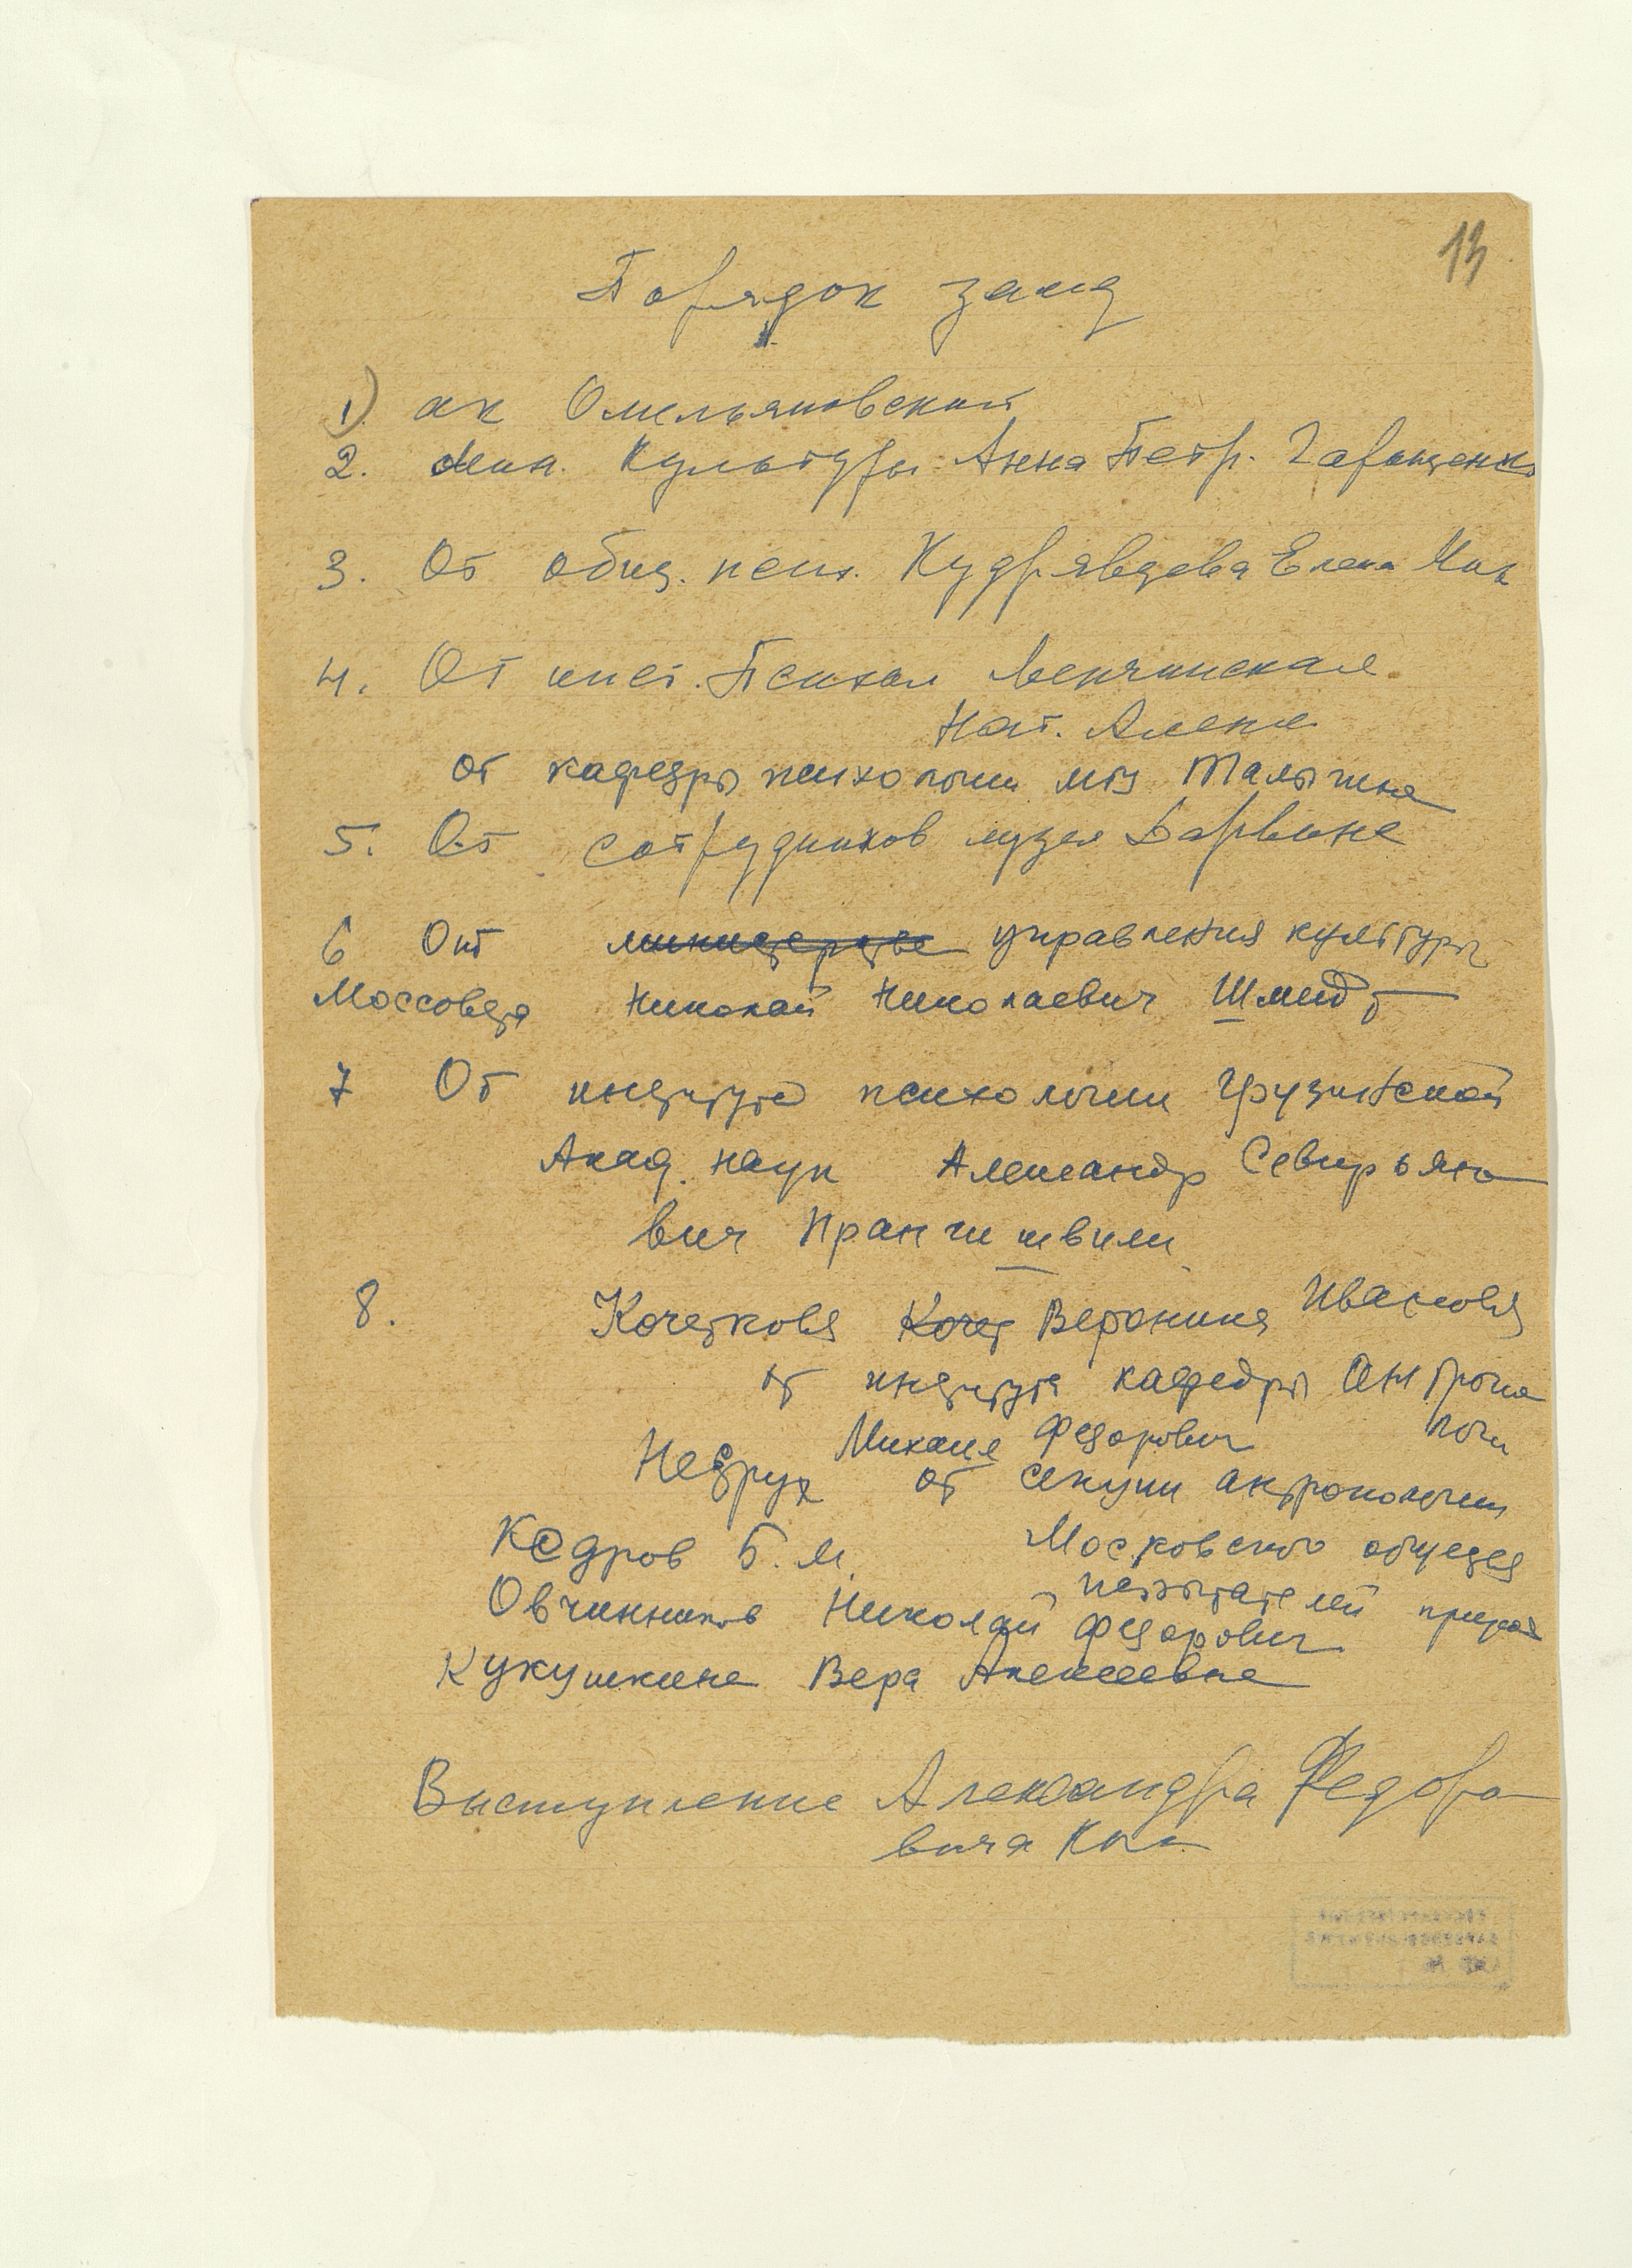 13
Порядок засед
1) ак Омельяновский
2. Мин. Культуры Анна Петр. Гаращенко
3. От общ. псих. Кудрявцева Елена Ник
4. От инст. Психол Менчинская
Нат. Алекс
от кафедры психологии МГУ Талызина
5. От сотрудников музея Дарвина
6 От министерства управления культуры
Моссовета Николай Николаевич Шмидт
7 От института психологии Грузинской
Акад. наук Александр Северьяно
вич Прангишвили
8. Кочеткова Кочет Вероника Ивановна
от института кафедры Антропо
логи
Михаил Федорович
Нестурх от секции антропологии
Кедров Б. М. Московского общества
испытателей природы
Овчинников Николай Федорович
Кукушкина Вера Алексеевна
Выступление Александра Федоро
вича